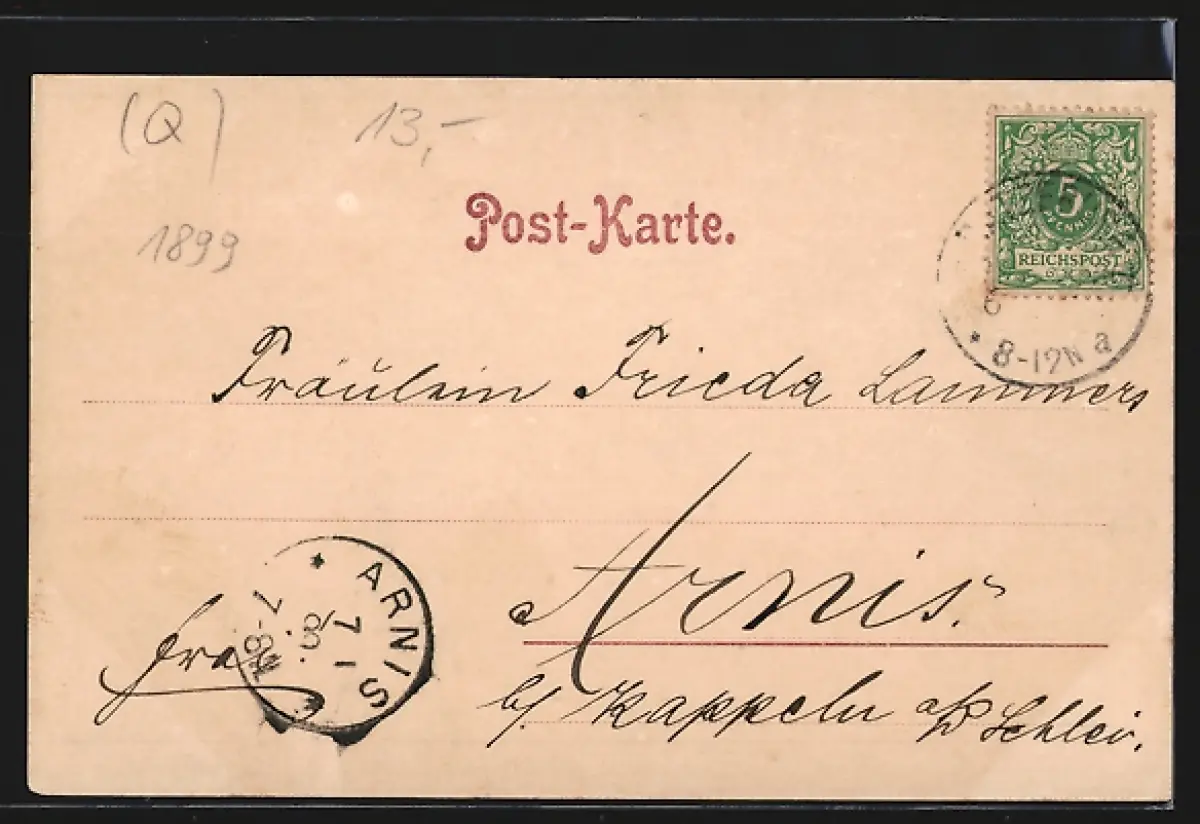 (Q)
13,-
1899
Post-Karte.
5
PFENNIG
REICHSPOST
8-12N a
Fräulein Frieda Lammers
Arnis.
b/ Kappeln a/d Schlei.
ARNIS
7
8
7-8N